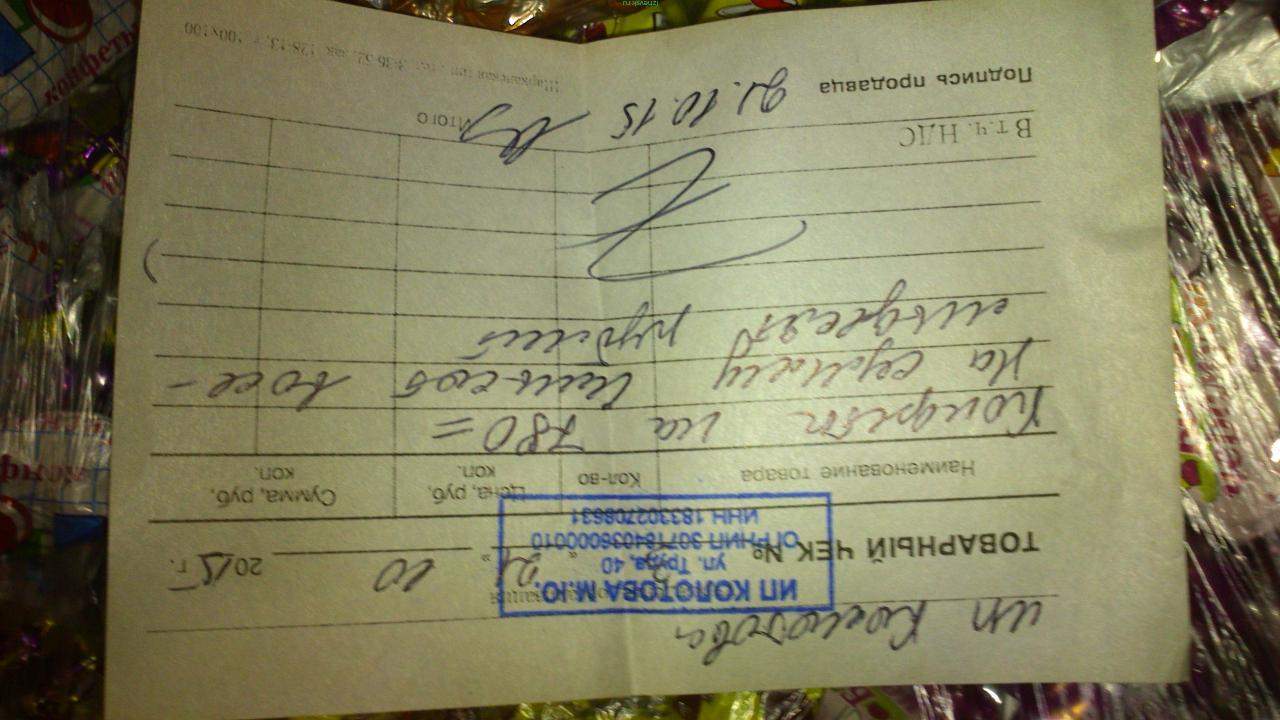 ИП Колотова
ИП КОЛОТОВА М.Ю.
ул. Труда, 40
ОГРНИП 307184036000010
ИНН 183302708631
ТОВАРНЫЙ ЧЕК № „21“ 10 2015 г.
Наименование товара Кол-во Цена, руб, коп. Сумма, руб, коп.
Конфеты на 780=
На сумму Семьсот восе-
мьдесят рублей
В т.ч. НДС Итого
Подпись продавца 21.10.15
конфеты
izhevsk.ru